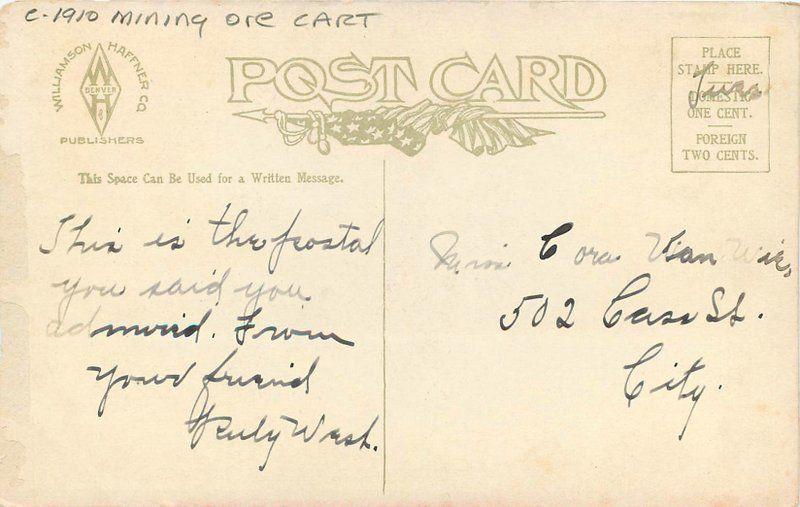 c-1910 Mining Ore CART
WILLIAMSON HAFFNER CO
DENVER
PUBLISHERS
POST CARD
PLACE
STAMP HERE.
DOMESTIC
ONE CENT.
FOREIGN
TWO CENTS.
This Space Can Be Used for a Written Message.
This is the postal
you said you
admired. From
your friend
West.
Miss Cora Van
502 Cass St.
City.